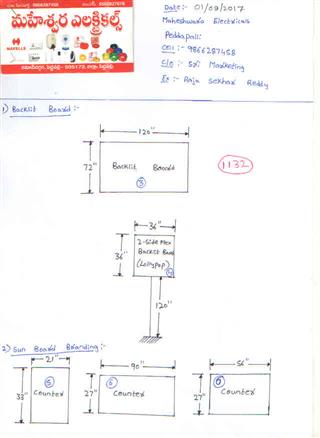 మహేశ్వర ఎలక్ట్రికల్స్
HAVELLS
Date:- 01/09/2017
Maheshwara Electricals
Peddapalli
Cell :- 9866287458
C/o :- Sri Marketing
Ex:- Raju Sekhar Reddy
1) Backlit Board:-
120"
72"
Backlit Board
3
1132
36"
36"
2-Side Flex
Backlit Board
(Lollypop)
120"
2) Sun Board Branding:-
21"
33"
5
Counter
90"
27"
Counter
56"
27"
Counter